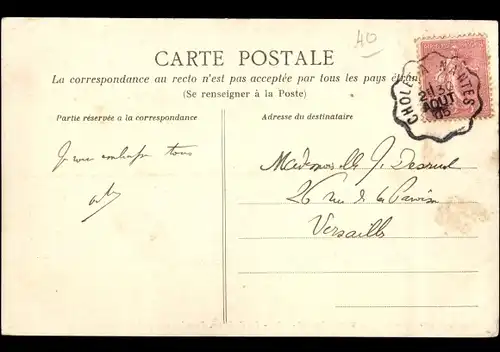 40
CARTE POSTALE
La correspondance au recto n'est pas acceptée par tous les pays étran
(Se renseigner à la Poste)
CHOLET A NANTES
2E 30
AOUT
05
Partie réservée a la correspondance
Adresse du destinataire
Je vous embrasse tous
Mademoiselle J.
26 rue de la Paroisse
Versailles